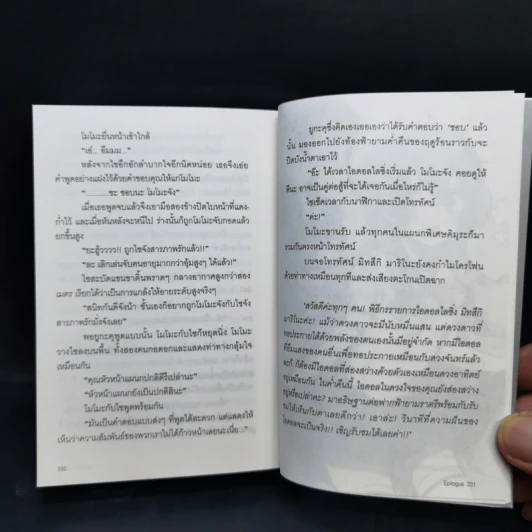 โมโมะยื่นหน้าเข้าใกล้
"เอ๋... อืมมม..."
หลังจากไซอึกอักลำบากใจอีกนิดหน่อย เธอจึงเอ่ย
คำพูดอย่างแผ่วไว้ด้วยคำขอบคุณให้แก่โมโมะ
"............ซะ ชอบนะ โมโมะจัง"
เมื่อเธอพูดจบแล้วจึงเอามือสองข้างปิดใบหน้าที่แดง
ก่ำไว้ และเมื่อหันหลังจะหนีไป ร่างนั้นก็ถูกโมโมะจับกอดแล้ว
ยกขึ้นสูง
"ยะฮู้วววว!! ถูกไซจังสารภาพรักแล้ว!!"
"ละ เลิกเล่นจับคนอายุมากกว่าอุ้มสูงๆ ได้แล้ว!"
ไซสะบัดแขนขาดิ้นพราดๆ กลางอากาศสูงกว่าสอง
เมตร เรียกได้ว่าเป็นการแกล้งให้อายระดับสูงจริงๆ
"สนิทกันดีจังน้า ชั้นเองก็อยากถูกโมโมะจังกับไซจัง
สารภาพรักมั่งจังเลย"
พอยูกะคุพูดแบบนั้น โมโมะกับไซก็หยุดนิ่ง โมโมะ
วางไซลงบนพื้น ทั้งสองคนกอดอกและแสดงท่าทางกลุ้มใจ
เหมือนกัน
"คุณหัวหน้าแผนกปกติดีรึเปล่านะ"
"หัวหน้าแผนกยังเป็นปกติสินะ"
โมโมะกับไซพูดพร้อมกัน
"มันเป็นคำตอบแบบส่งๆ ที่พูดได้สะดวก แต่แสดงให้
เห็นว่าความสัมพันธ์ของพวกเราไม่ได้ก้าวหน้าเลยนะเนี่ย..."
ยูกะคุซึ่งคิดเองเออเองว่าได้รับคำตอบว่า 'ชอบ' แล้ว
นั้น มองออกไปยังท้องฟ้ายามค่ำคืนของฤดูร้อนราวกับจะ
ปิดบังน้ำตาเอาไว้
"อ๊ะ ได้เวลาไอดอลไลซิ่งเริ่มแล้ว โมโมะจัง คอยดูให้
ดีนะ อาจเป็นคู่ต่อสู้ที่จะได้เจอกันเมื่อไหร่ก็ไม่รู้"
ไซเช็คเวลากับนาฬิกาและเปิดโทรทัศน์
"ค่ะ!"
โมโมะขานรับ แล้วทุกคนในแผนกพิเศษคิมุระก็มา
รวมกันตรงหน้าโทรทัศน์
บนจอโทรทัศน์ มิทสึกิ มาริโนะยังคงกำไมโครโฟน
ด้วยท่าทางเหมือนทุกทีและส่งเสียงตะโกนเปิดฉาก
'สวัสดีค่ะทุกๆ คน! พิธีกรรายการไอดอลไลซิ่ง มิทสึกิ
มาริโนะค่ะ! แม้ว่าดวงดาวจะมีนับหมื่นแสน แต่ดวงดาวที่
ทอประกายได้ด้วยพลังของตนเองนั้นมีอยู่จำกัด หากมีไอดอล
Epilogue 331